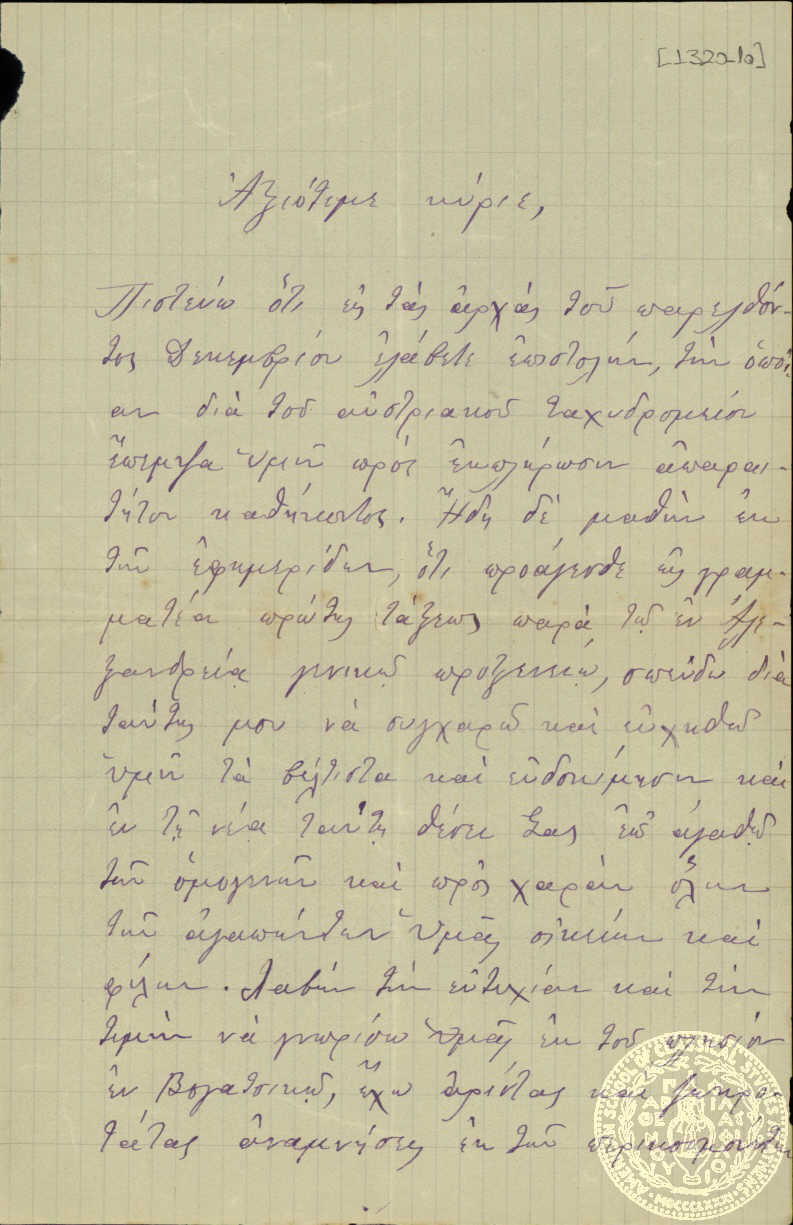 [1320-1α]
Ἀξιότιμε κύριε,
Πιστεύω ὅτι εἰς τὰς ἀρχὰς τοῦ παρελθόν-
τος Δεκεμβρίου ἐλάβετε ἐπιστολήν, τὴν ὁποί-
αν διὰ τοῦ αὐστριακοῦ ταχυδρομείου
ἔπεμψα ὑμῖν πρὸς ἐκπλήρωσιν ἀπαραι-
τήτου καθήκοντος. Ἤδη δὲ μαθὼν ἐκ
τῶν ἐφημερίδων, ὅτι προάγεσθε εἰς γραμ-
ματέα πρώτης τάξεως παρὰ τῷ ἐν Ἀλε-
ξανδρείᾳ γενικῷ προξενείῳ, σπεύδω διὰ
ταύτης μου νὰ συγχαρῶ καὶ εὐχηθῶ
ὑμῖν τὰ βέλτιστα καὶ εὐδοκίμησιν καὶ
ἐν τῇ νέᾳ ταύτῃ θέσει Σας ἐπ' ἀγαθῷ
τῶν ὁμογενῶν καὶ πρὸς χαρὰν ὅλων
τῶν ἀγαπώντων Ὑμᾶς οἰκείων καὶ
φίλων. Λαβὼν τὴν εὐτυχίαν καὶ τὴν
τιμὴν νὰ γνωρίσω Ὑμᾶς ἐκ τοῦ πλησίον
ἐν Βογατσικῷ, ἔχω ἀρίστας καὶ
τάτας ἀναμνήσεις ἐκ τῶν
AMERICAN SCHOOL OF CLASSICAL STUDIES
MDCCCLXXXI
ΠΑΡΘΕΝΟΥ ΦΙΛΙΑ